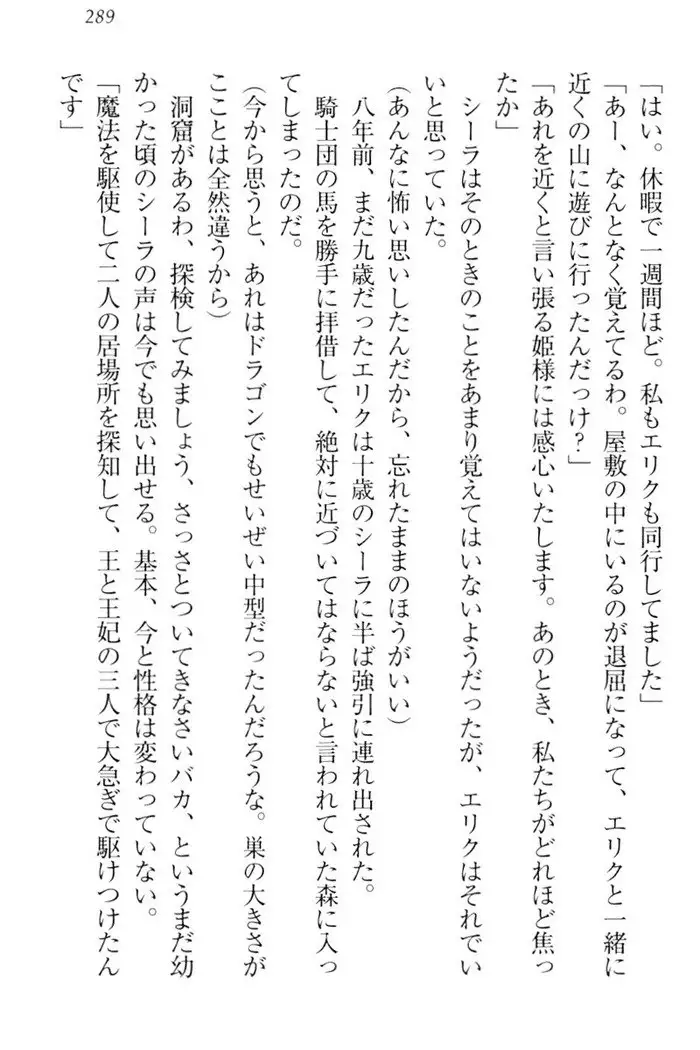 289
「はい。休暇で一週間ほど。私もエリクも同行してました」
「あー、なんとなく覚えてるわ。屋敷の中にいるのが退屈になって、エリクと一緒に
近くの山に遊びに行ったんだっけ?」
「あれを近くと言い張る姫様には感心いたします。あのとき、私たちがどれほど焦っ
たか」
　シーラはそのときのことをあまり覚えてはいないようだったが、エリクはそれでい
いと思っていた。
(あんなに怖い思いしたんだから、忘れたままのほうがいい)
　八年前、まだ九歳だったエリクは十歳のシーラに半ば強引に連れ出された。
　騎士団の馬を勝手に拝借して、絶対に近づいてはならないと言われていた森に入っ
てしまったのだ。
(今から思うと、あれはドラゴンでもせいぜい中型だったんだろうな。巣の大きさが
こことは全然違うから)
　洞窟があるわ、探検してみましょう、さっさとついてきなさいバカ、というまだ幼
かった頃のシーラの声は今でも思い出せる。基本、今と性格は変わっていない。
「魔法を駆使して二人の居場所を探知して、王と王妃の三人で大急ぎで駆けつけたん
です」